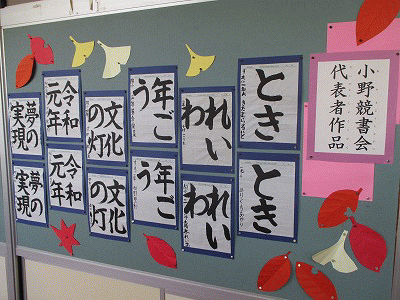 小野競書会
代表者作品
とき
れい
わ
年ご
う
文化
の灯
令和
元年
夢の
実現
とき
れい
わ
年ご
う
文化
の灯
令和
元年
夢の
実現